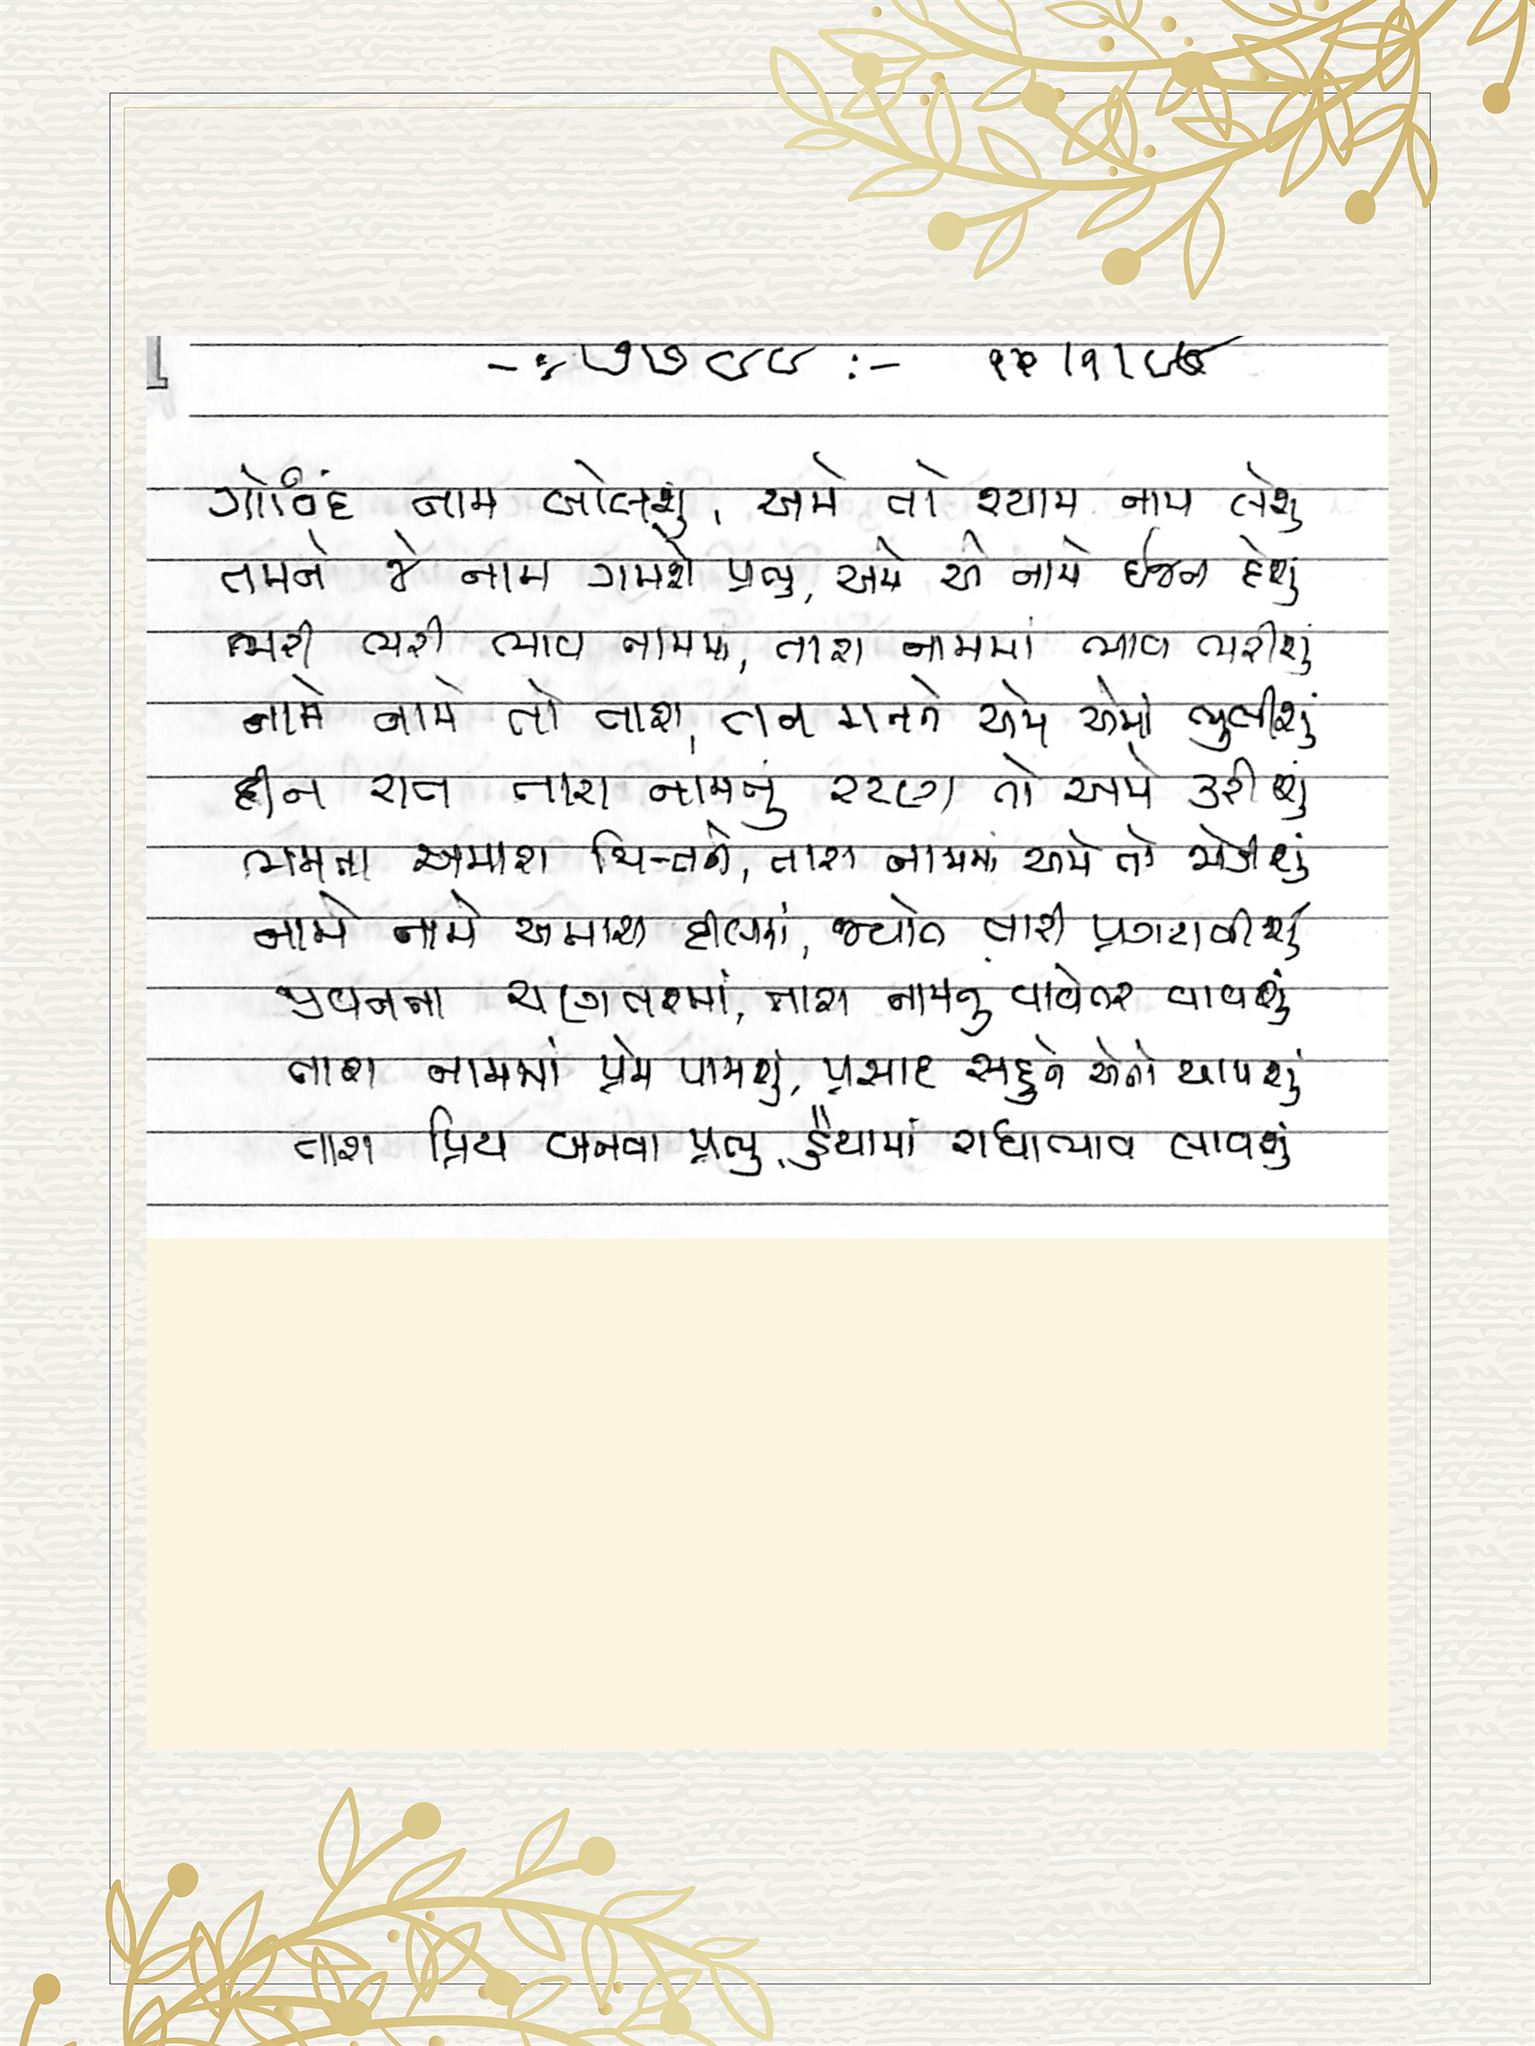 -: ૭૭૮૮ :- ૧૨/૧/૮૯
ગોવિંદ નામ બોલશું, અમે તો શ્યામ નામ લેશું
તમને જે નામ ગમશે પ્રભુ, અમે એ નામે ઈજન દેશું
ભરી ભરી ભાવ નામમાં, તારા નામમાં ભાવ ભરીશું
નામે નામે તો તારા, તન મનને અમે એમાં ભુલીશું
દીન રાત તારા નામનું રટણ તો અમે કરીશું
મમતા અમારા ચિત્તને, તારા નામમાં અમે તો જોડીશું
નામે નામે અમારા દીલમાં, જ્યોત તારી પ્રગટાવીશું
જીવનના ચણતરમાં, તારા નામનું વાવેતર વાવશું
તારા નામમાં પ્રેમ પામશું, પ્રસાદ સહુને એનો આપશું
તારા પ્રિય બનવા પ્રભુ, હૈયામાં રાધાભાવ લાવશું